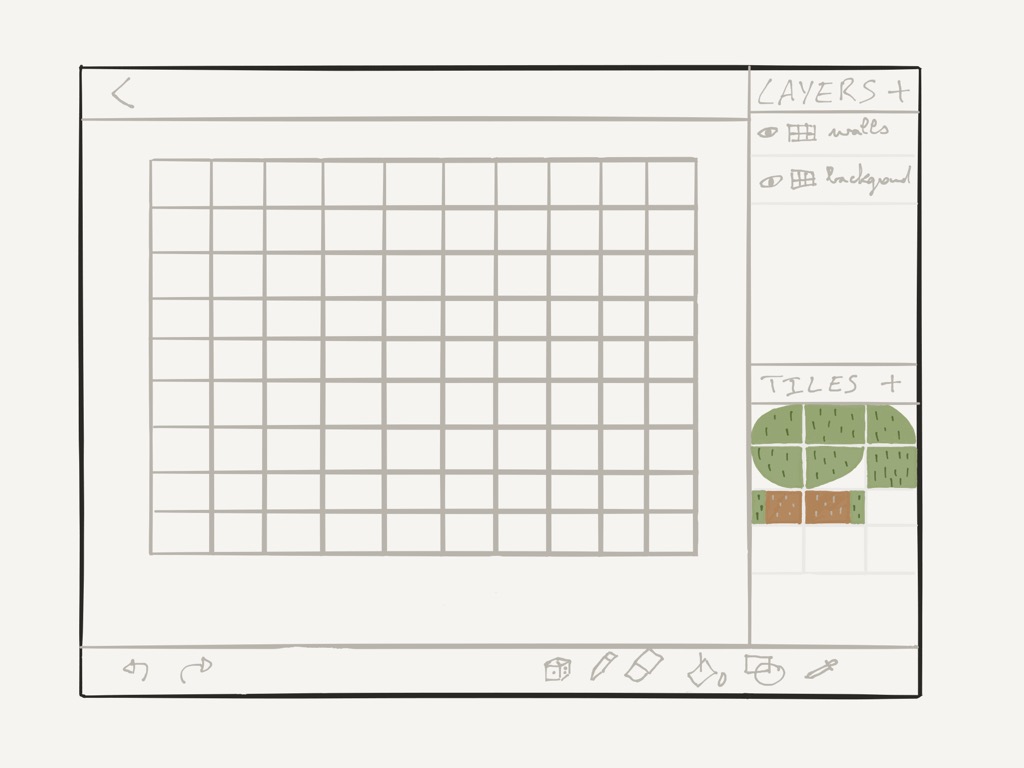 LAYERS +
walls
backgound
TILES +